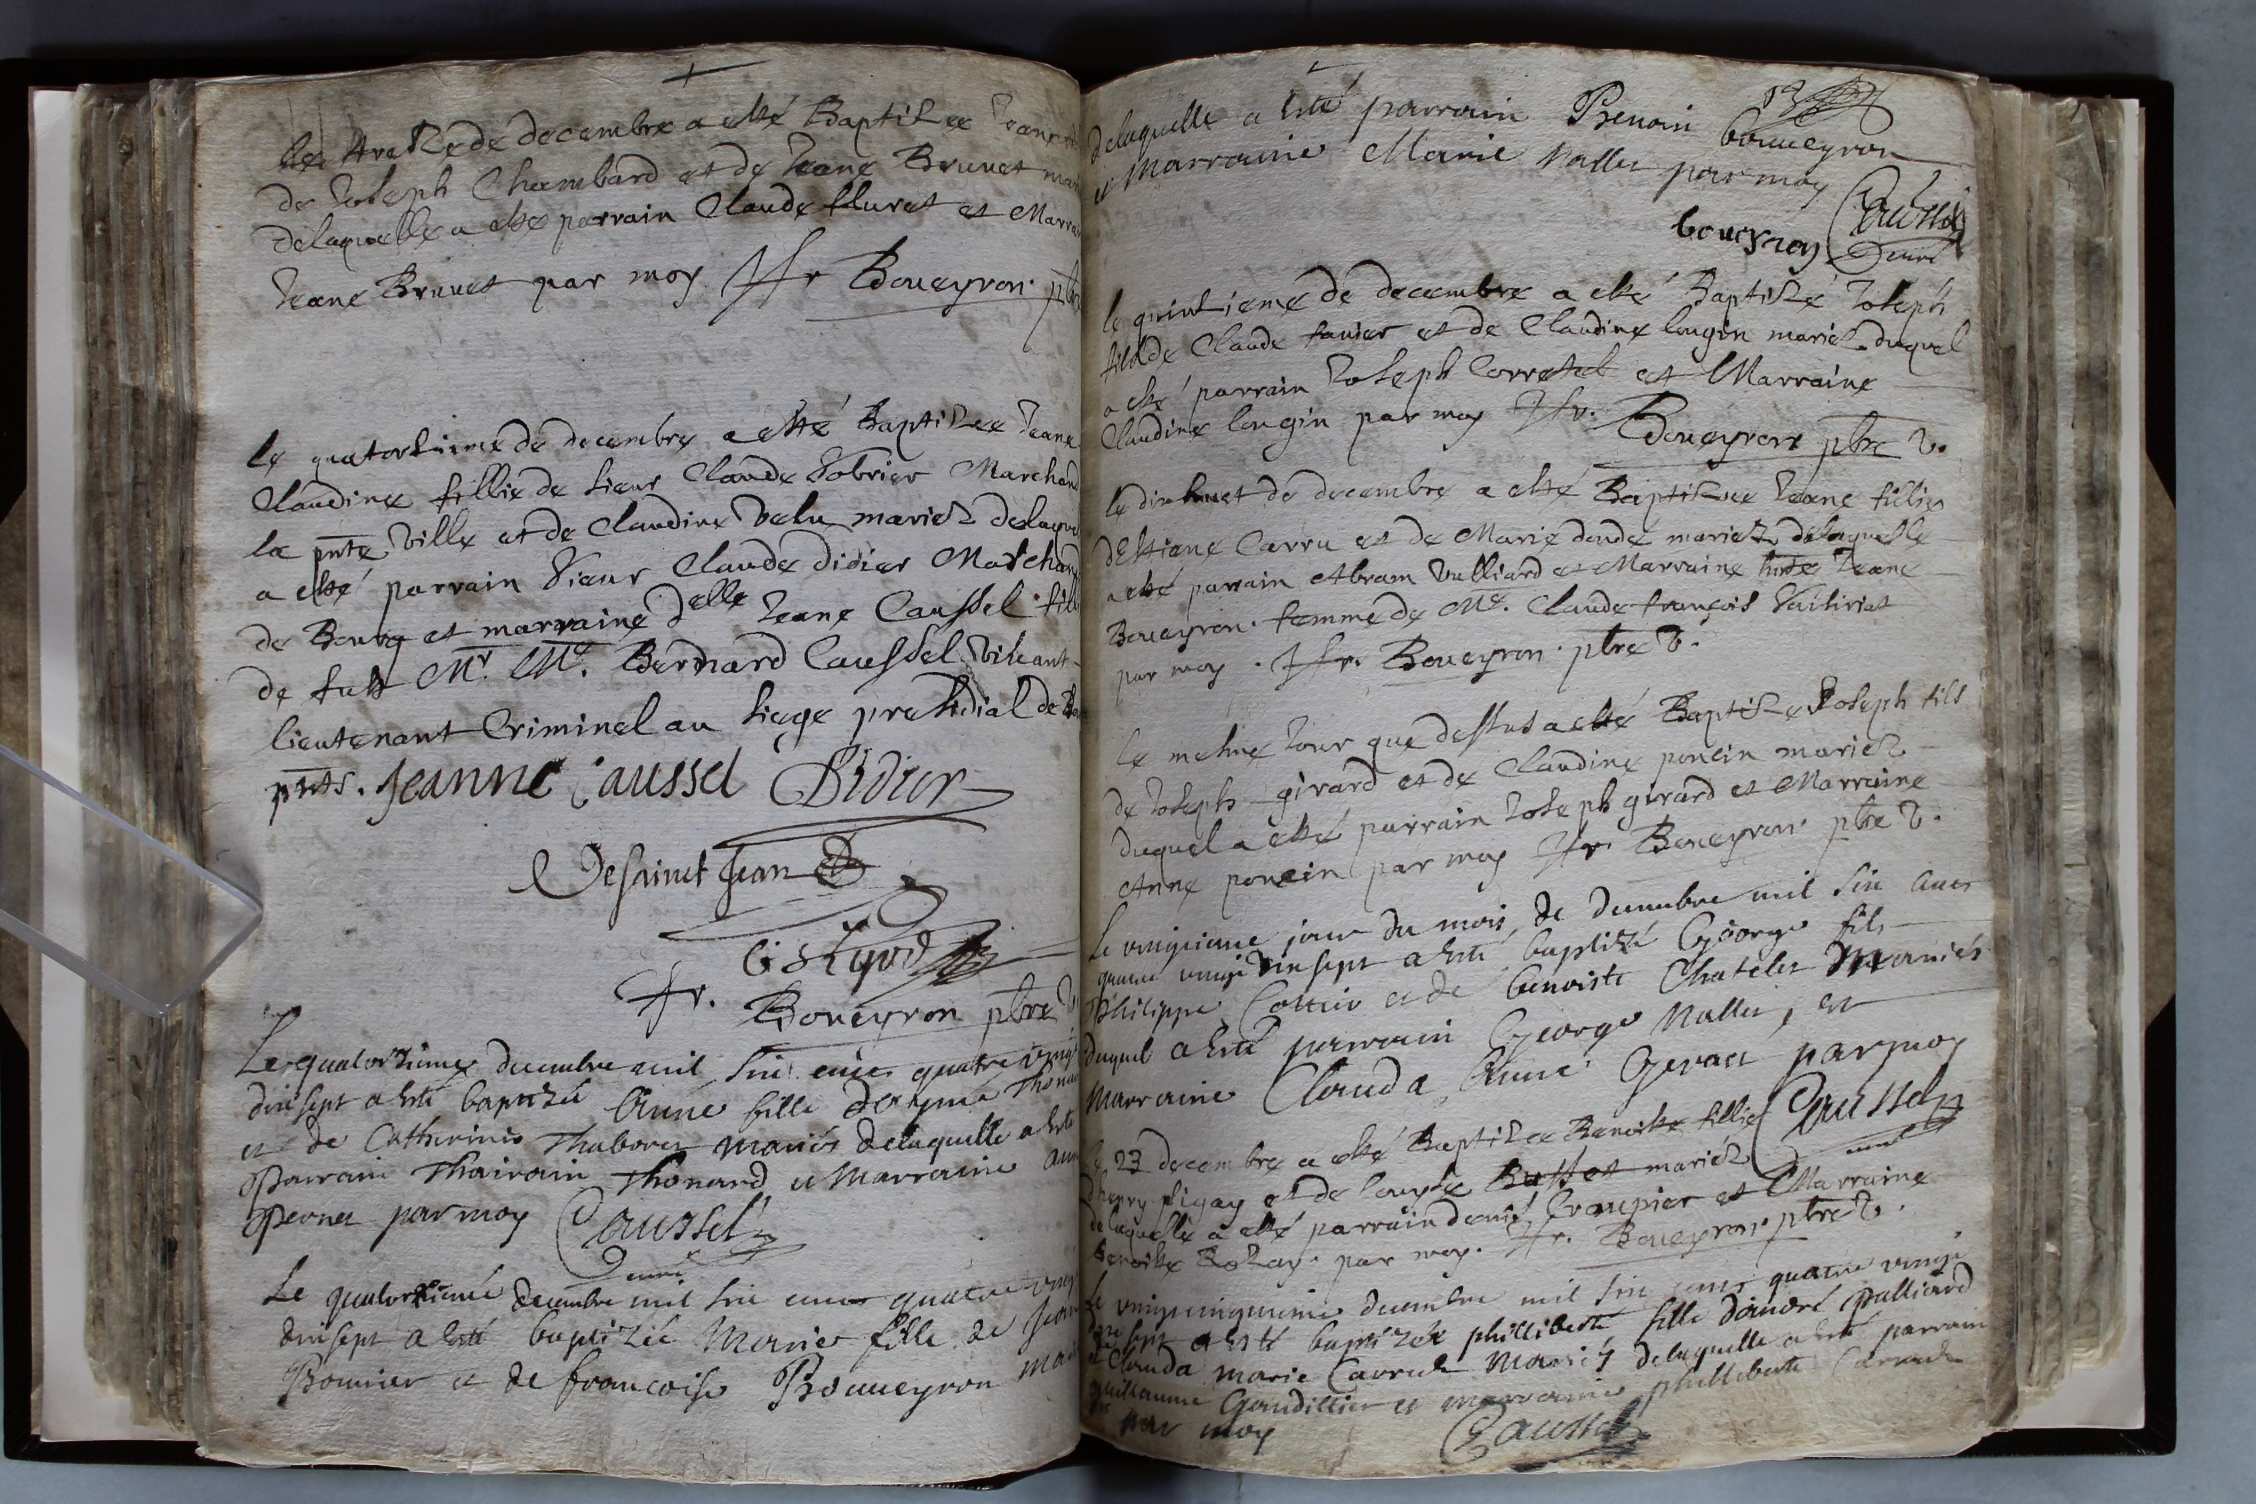 Le treze de decembre a esté Baptizee Jeane
de Joseph Chambard et de Jeane Brunet
delaquelle a esté parrain Claude fluret et Marraine
Jeane Brunet par moy fr Boueyron pbre
Le quatorzieme de decembre a esté Baptizee Jeane
Claudine fillie de sieur Claude Marchand
la pnte ville et de Claudine Velu mariez delaquelle
a esté parrain Sieur Claude Didier Marchand
de Bourg et marraine delle Jeane Caussel
de fust Mr Me. Bernard Caussel vivant
lieutenant Criminel au siege presidial de
pnts. Jeanne Caussel Didier
Desainct Jean
fr. Boueyron pbre V
Le quatorzieme decembre mil six cens quatre vingt
dixsept a esté baptizée Anne fille de
et de Catherine Thabouret mariés delaquelle a esté
parrain Thonard et Marraine
Pernet par moy Caussel
curé
Le quatorzieme decembre mil six cens quatre vingt
dixsept a esté baptizée Marie fille de Jean
Bouvier et de francoise Boueyron
delaquelle a esté parrain Benoit boueyron
et Marraine Marie Vallet par moy
boueyron Caussel
curé
le quinzieme de decembre a esté Baptizé Joseph
filz de Claude favier et de Claudine longin mariez duquel
a esté parrain Joseph et Marraine
Claudine longin par moy fr. Boueyron pbre V.
le dix huet de decembre a esté Baptizee Jeane fillie
dEstiene Carru et de Marie dondé mariez delaquelle
a esté parrain Abram Vulliard et Marraine Jeane
Boueyron femme de Me. Claude françois
par moy. fr. Boueyron pbre V.
Le mesme Jour que dessus a esté Baptizé Joseph fils
de Joseph girard et de Claudine poncin mariez
duquel a esté parrain Joseph girard et Marraine
Anne poncin par moy fr. Boueyron pbre V.
Le vingtieme jour du mois de decembre mil six cens
quatre vingt dixsept a esté baptizé George fils
Philippe et de benoiste Chatelet mariés
duquel a esté parrain George Vallet, et
Marraine Clauda Anne par moy
Caussel
curé
Le 23 decembre a esté Baptizee Benoiste fillie
dhenry pigay et de louyse Busset mariez
delaquelle a esté parrain denis et Marraine
benoiste par moy. fr. Boueyron pbre V.
Le vingcinquieme decembre mil six cens quatre vingt
dixsept a esté baptizée philliberte fille dandré Palliard
et Clauda marie mariés delaquelle a esté parrain
guillaume Gaudillier et marraine philliberte
par moy Caussel